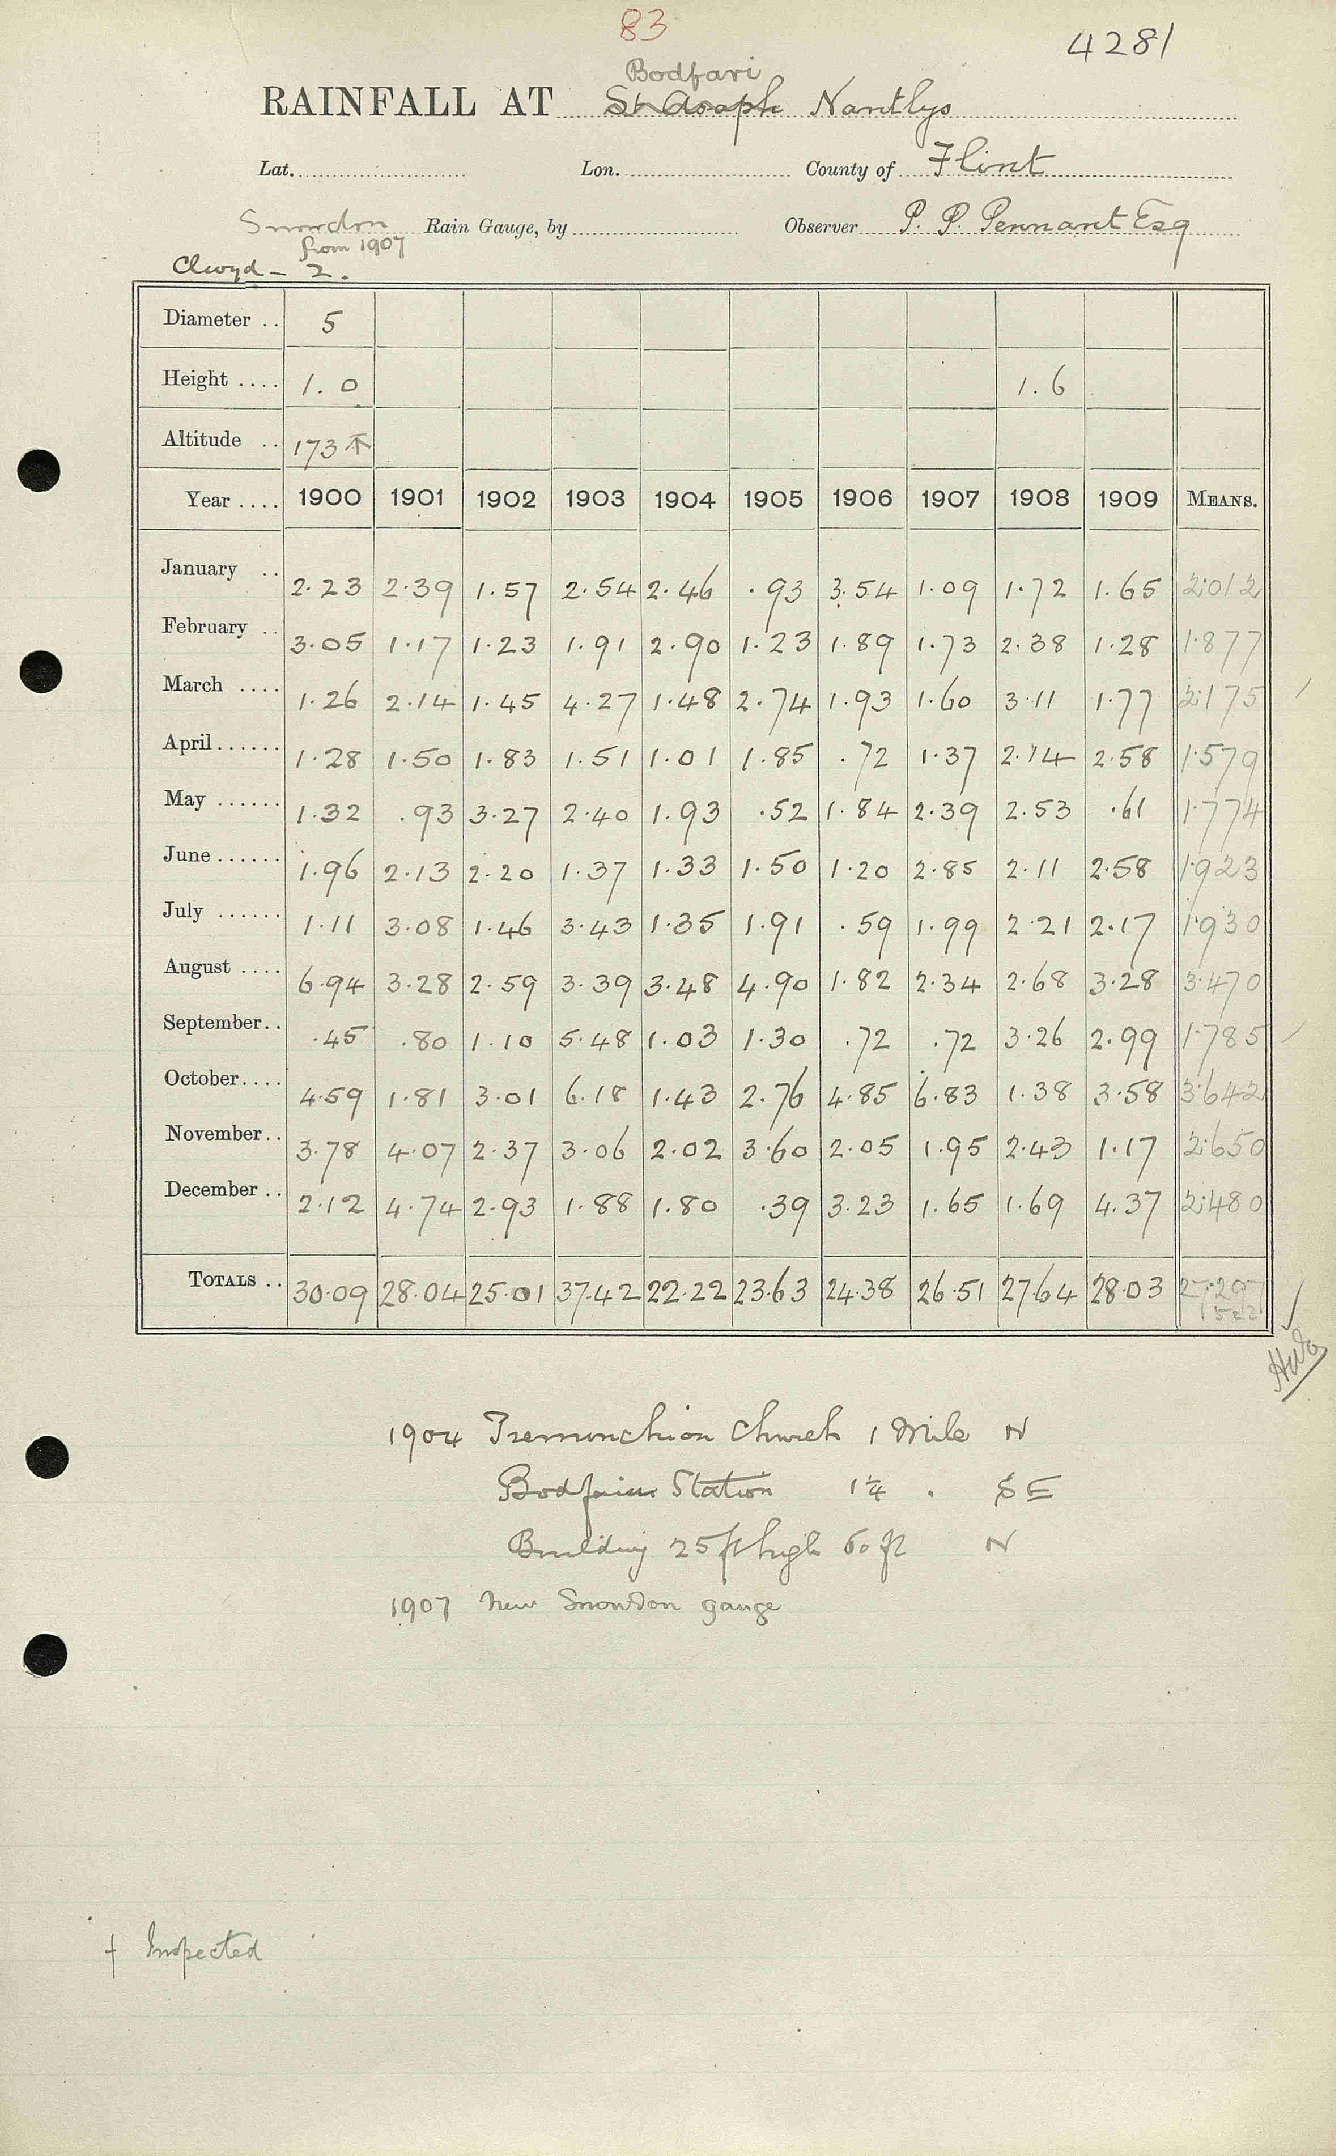 83
4281
Bodfari
RAINFALL AT St Asaph Nantlys
Lat. Lon. County of Flint
Snowdon Rain Gauge, by Observer P. P. Pennant Esq
from 1907
Clwyd - 2.
Diameter .. 5
Height .... 1. 0 1. 6
Altitude .. 173 T
Year .... 1900 1901 1902 1903 1904 1905 1906 1907 1908 1909 MEANS.
January .. 2.23 2.39 1.57 2.54 2.46 .93 3.54 1.09 1.72 1.65 2.012
February .. 3.05 1.17 1.23 1.91 2.90 1.23 1.89 1.73 2.38 1.28 1.877
March .... 1.26 2.14 1.45 4.27 1.48 2.74 1.93 1.60 3.11 1.77 2.175
April...... 1.28 1.50 1.83 1.51 1.01 1.85 .72 1.37 2.14 2.58 1.579
May ...... 1.32 .93 3.27 2.40 1.93 .52 1.84 2.39 2.53 .61 1.774
June...... 1.96 2.13 2.20 1.37 1.33 1.50 1.20 2.85 2.11 2.58 1.923
July ...... 1.11 3.08 1.46 3.43 1.35 1.91 .59 1.99 2.21 2.17 1.930
August .... 6.94 3.28 2.59 3.39 3.48 4.90 1.82 2.34 2.68 3.28 3.470
September.. .45 .80 1.10 5.48 1.03 1.30 .72 .72 3.26 2.99 1.785
October.... 4.59 1.81 3.01 6.18 1.43 2.76 4.85 6.83 1.38 3.58 3.642
November.. 3.78 4.07 2.37 3.06 2.02 3.60 2.05 1.95 2.43 1.17 2.650
December .. 2.12 4.74 2.93 1.88 1.80 .39 3.23 1.65 1.69 4.37 2.480
TOTALS .. 30.09 28.04 25.01 37.42 22.22 23.63 24.38 26.51 27.64 28.03 27.297
1904 Tremeirchion Church 1 Mile N
Bodfari Station 1¼ . S E
Building 25 ft high 60 ft N
1907 New Snowdon gauge
† Inspected